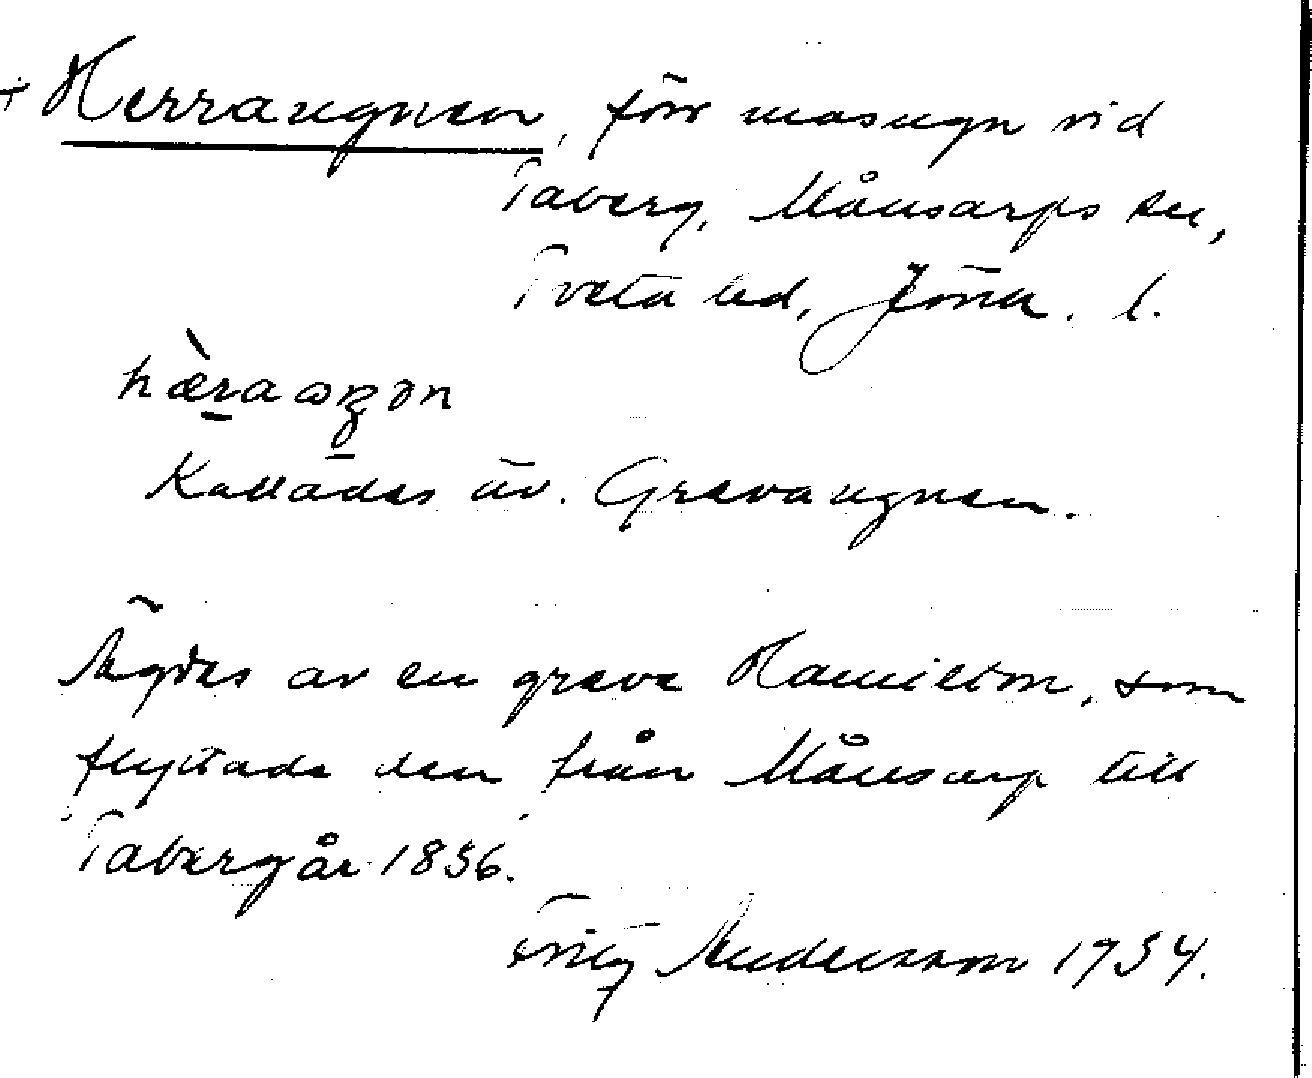 + Herraugnen, förr masugn vid
Taberg, Månsarps sn,
Tveta hd, Jönk. l.
hæ̀raɷgən
Kallades äv. Grevaugnen.
Ägdes av en greve Hamilton, som
flyttade den från Månsarp till
Taberg år 1836.
Fritz Andersson 1934.